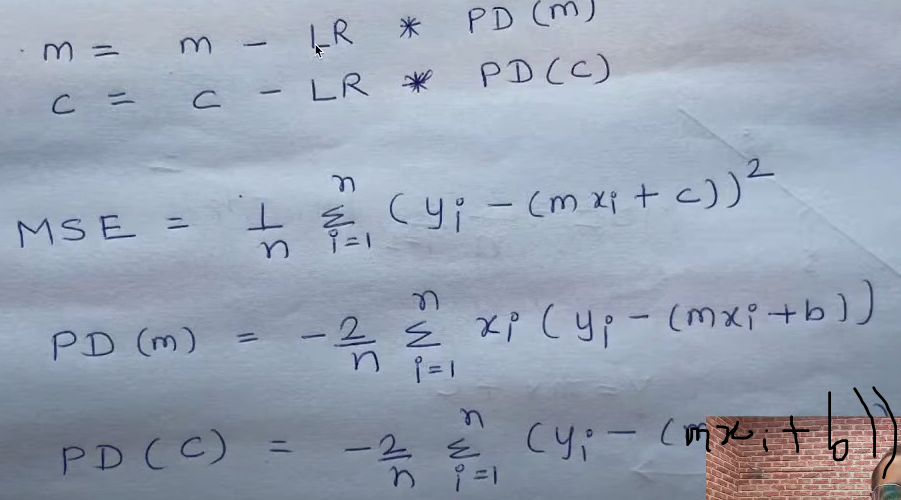 m = m - LR * PD (m)
c = c - LR * PD (c)
MSE = 1/n Σ_{i=1}^{n} (y_i - (m x_i + c))^2
PD (m) = -2/n Σ_{i=1}^{n} x_i (y_i - (mx_i + b))
PD (c) = -2/n Σ_{i=1}^{n} (y_i - (mx_i + b))